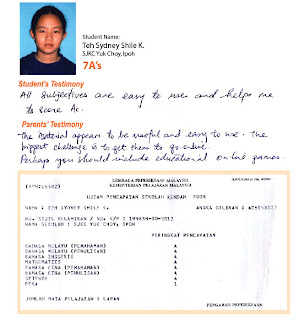 Student Name:
Teh Sydney Shile K.
SJKC Yuk Choy, Ipoh
7A's
Student's Testimony
All subjectives are easy to use and helps me
to score As.
Parents' Testimony
The material appears to be useful and easy to use. The
biggest challenge is to get them to go online.
Perhaps you should include educational on-line games.
LEMBAGA PEPERIKSAAN MALAYSIA
KEMENTERIAN PELAJARAN MALAYSIA
UJIAN PENCAPAIAN SEKOLAH RENDAH 2008
NAMA : TEH SYDNEY SHILE K.
ANGKA GILIRAN :
NAMA SEKOLAH : SJKC YUK CHOY, IPOH
PERINGKAT PENCAPAIAN
BAHASA MELAYU (PEMAHAMAN) A
BAHASA MELAYU (PENULISAN) A
BAHASA INGGERIS A
MATHEMATICS A
BAHASA CINA (PEMAHAMAN) A
BAHASA CINA (PENULISAN) A
SCIENCE A
JUMLAH MATA PELAJARAN : LAPAN
PENGARAH PEPERIKSAAN